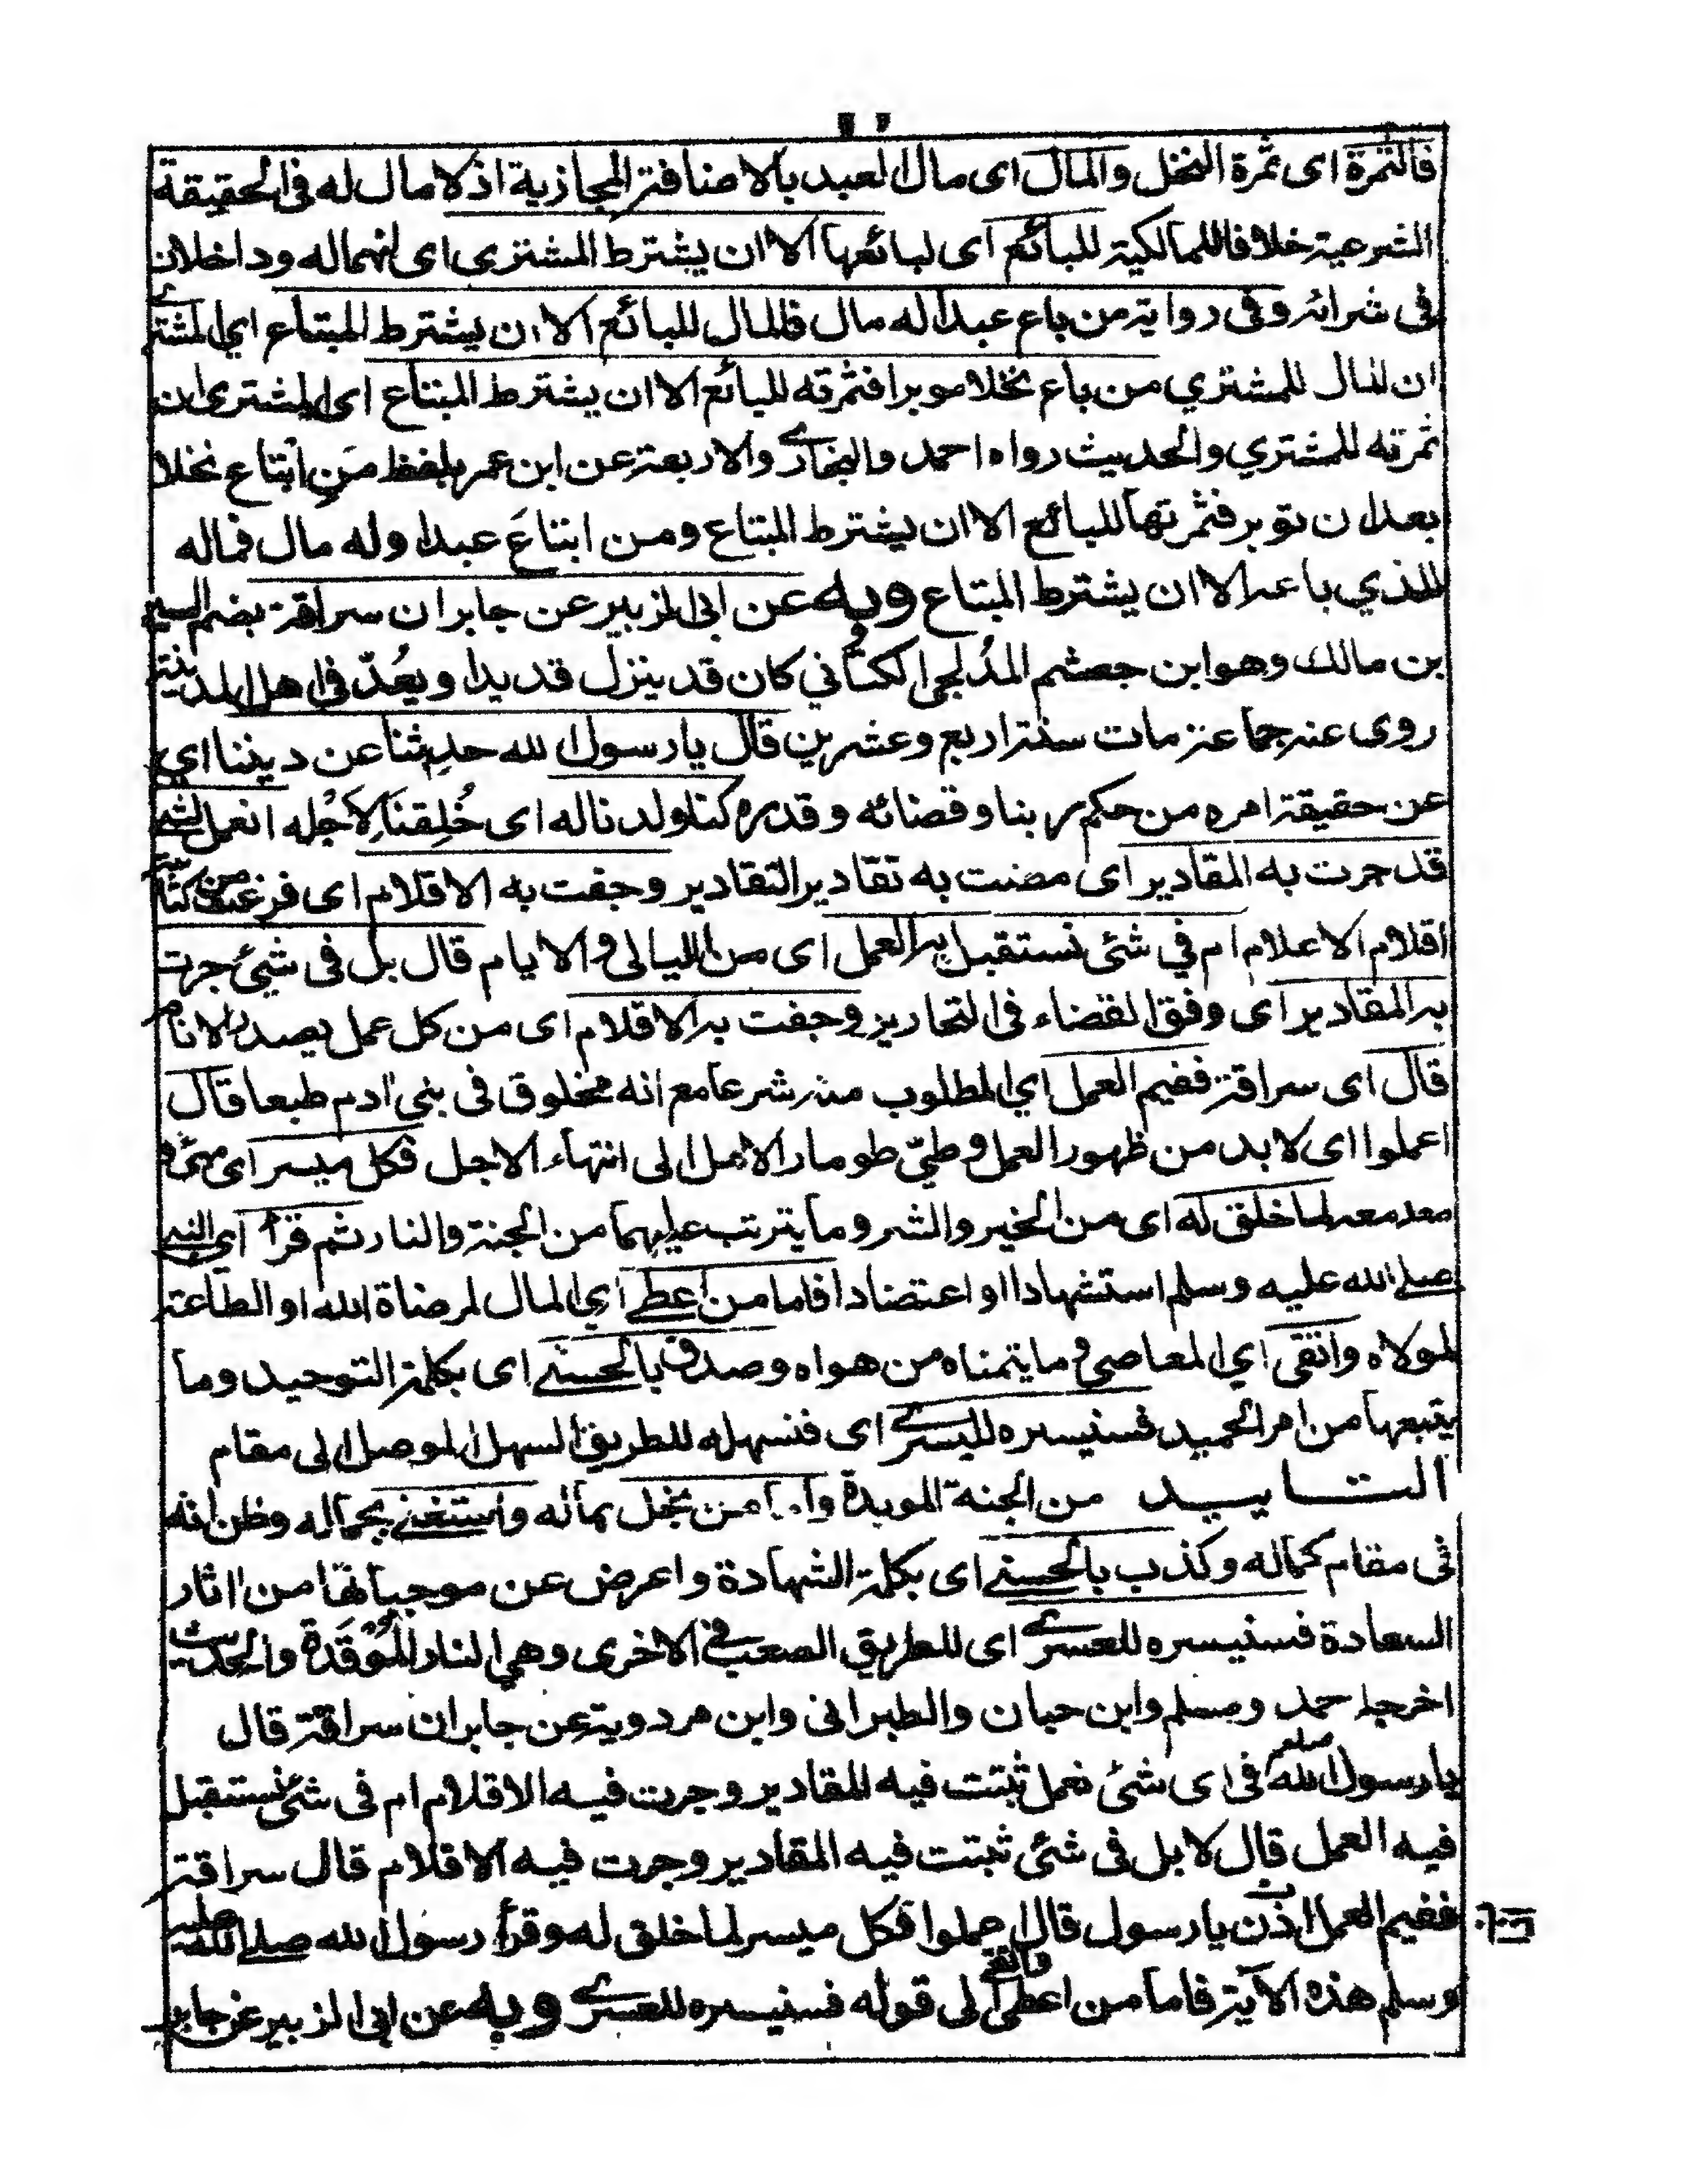 فالثمرة اى ثمرة النخل والمال اى مال العبد بالاضافة المجازية اذ لا مال له فى الحقيقة
الشرعية خلافا للمالكية للبائع اى لبائعها الا ان يشترط المشترى اى انهماله وداخلان
فى شرائه وفى رواية من باع عبدا له مال فالمال للبائع الا ان يشترط المبتاع اي المشترے
ان المال للمشتري من باع نخلا موبرا فثمرته للبائع الا ان يشترط المبتاع اى المشترى ان
ثمرته للمشتري والحديث رواه احمد والبخارے والاربعة عن ابن عمر بلفظ من ابتاع نخلا
بعد ان توبر فثمرتها للبائع الا ان يشترط المبتاع ومن ابتاع عبدا وله مال فماله
للذي باعه الا ان يشترط المبتاع وبه عن ابى الزبير عن جابر ان سراقة بضم السين
بن مالك وهو ابن جعشم المدلجى الكناني كان قد ينزل قديدا ويعدّ فى اهل المدينة
روى عنه جماعة مات سنة اربع وعشرين قال يا رسول الله حدثنا عن ديننا اى
عن حقيقة امره من حكم ربنا وقضائه وقدره كنا ولدنا له اى خُلِقنا لِاَجْله انعمل لشئ
قد جرت به المقادير اى مضت به تقادير التقادير وجفت به الاقلام اى فرغت من كتابة
اقلام الاعلام ام في شئ نستقبل به العمل اى من الليالى والايام قال بل فى شيئ جرت
به المقادير اى وفق القضاء فى التحارير وجفت به الاقلام اى من كل عمل يصدر الانام
قال اى سراقة ففيم العمل اي المطلوب منه شرعا مع انه مخلوق فى بنى ادم طبعا قال
اعملوا اى لا بد من ظهور العمل وطيّ طومار الامل الى انتهاء الاجل فكل ميسر اى
معد معه لما خلق له اى من الخير والشر وما يترتب عليهما من الجنة والنار ثم قرأ اي النبى
صلے الله عليه وسلم استشهادا او اعتضادا فاما من اعطے اي المال لمرضاة الله او الطاعة
لمولاه واتقى اي المعاصى وما يتمناه من هواه وصدق بالحسنے اى بكلمة التوحيد وما
يتبعها من امر الحميد فسنيسره لليسرے اى فنسهله للطريق السهل الموصل الى مقام
التـايـيـد من الجنة الموبدة واما من بخل بماله واستغنے بجماله وظن انه
فى مقام كماله وكذب بالحسنے اى بكلمة الشهادة واعرض عن موجباتها من اثار
السعادة فسنيسره للعسرے اى للطريق الصعب فى الاخرى وهى النار المُوْقَدة والحديث
اخرجه احمد ومسلم وابن حبان والطبرانى وابن مردوية عن جابر ان سراقة قال
يا رسول الله صلعم فى اى شئ نعمل ثبتت فيه المقادير وجرت فيه الاقلام ام فى شئ نستقبل
فيه العمل قال لا بل فى شئ ثبتت فيه المقادير وجرت فيه الاقلام قال سراقة
ففيم العمل اذن يا رسول قال اعملوا فكل ميسر لما خلق له وقرأ رسول الله صلے الله عليه
وسلم هذه الآية فاما من اعطى واتقے الى قوله فسنيسره للعسرے وبه عن ابى الزبير عن جابر